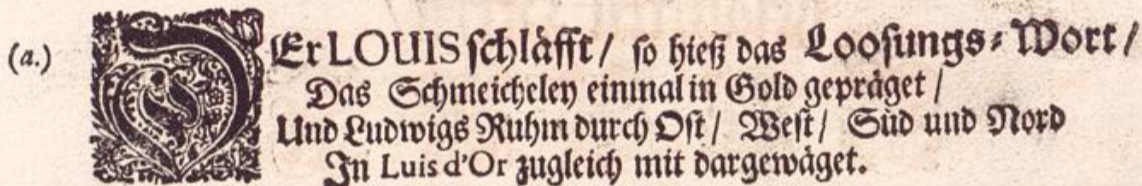 (a.) DEr LOUIS schläfft / so hieß das Loosungs-Wort /
Das Schmeicheley einmal in Gold gepräget /
Und Ludwigs Ruhm durch Ost / West / Süd und Nord
In Luis d'Or zugleich mit dargewäget.